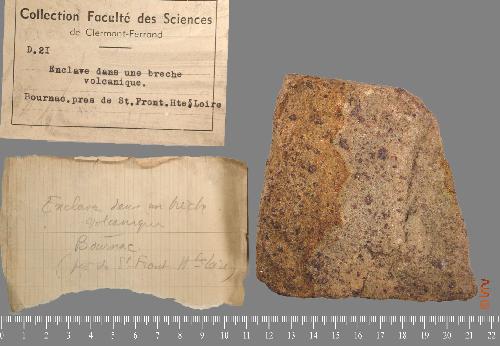 Collection Faculté des Sciences
de Clermont-Ferrand
D.2I
Enclave dans une breche
volcanique.
Bournac.pres de St.Front.Hte Loire
Enclave dans un brèche
volcanique
Bournac
(près de St Front Hte Loire)
0 1 2 3 4 5 6 7 8 9 10 11 12 13 14 15 16 17 18 19 20 21 22